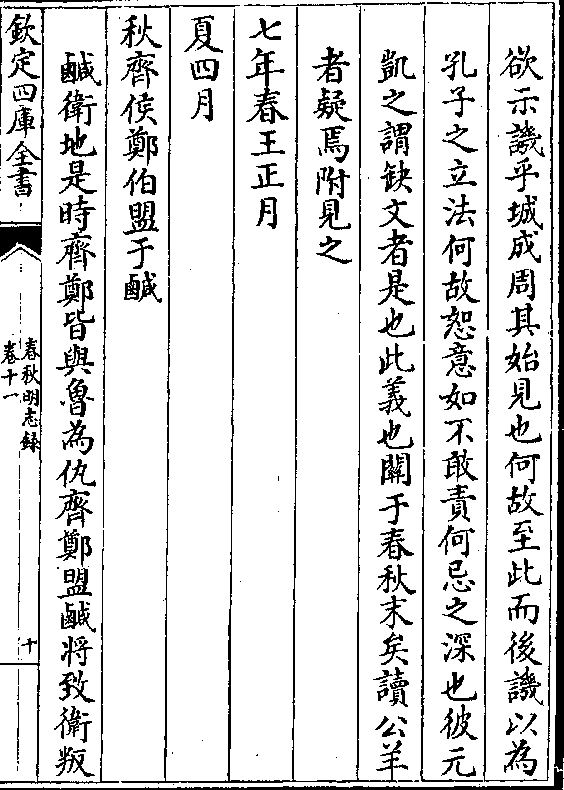 欲示譏乎城成周其始見也何故至此而後譏以為
孔子之立法何故恕意如不敢責何忌之深也彼元
凱之謂缺文者是也此義也關于春秋末矣讀公羊
者疑焉附見之
七年春王正月
夏四月
秋齊侯鄭伯盟于鹹
鹹衛地是時齊鄭皆與魯為仇齊鄭盟鹹將致衛叛
欽定四庫全書
春秋明志錄
卷十一
十